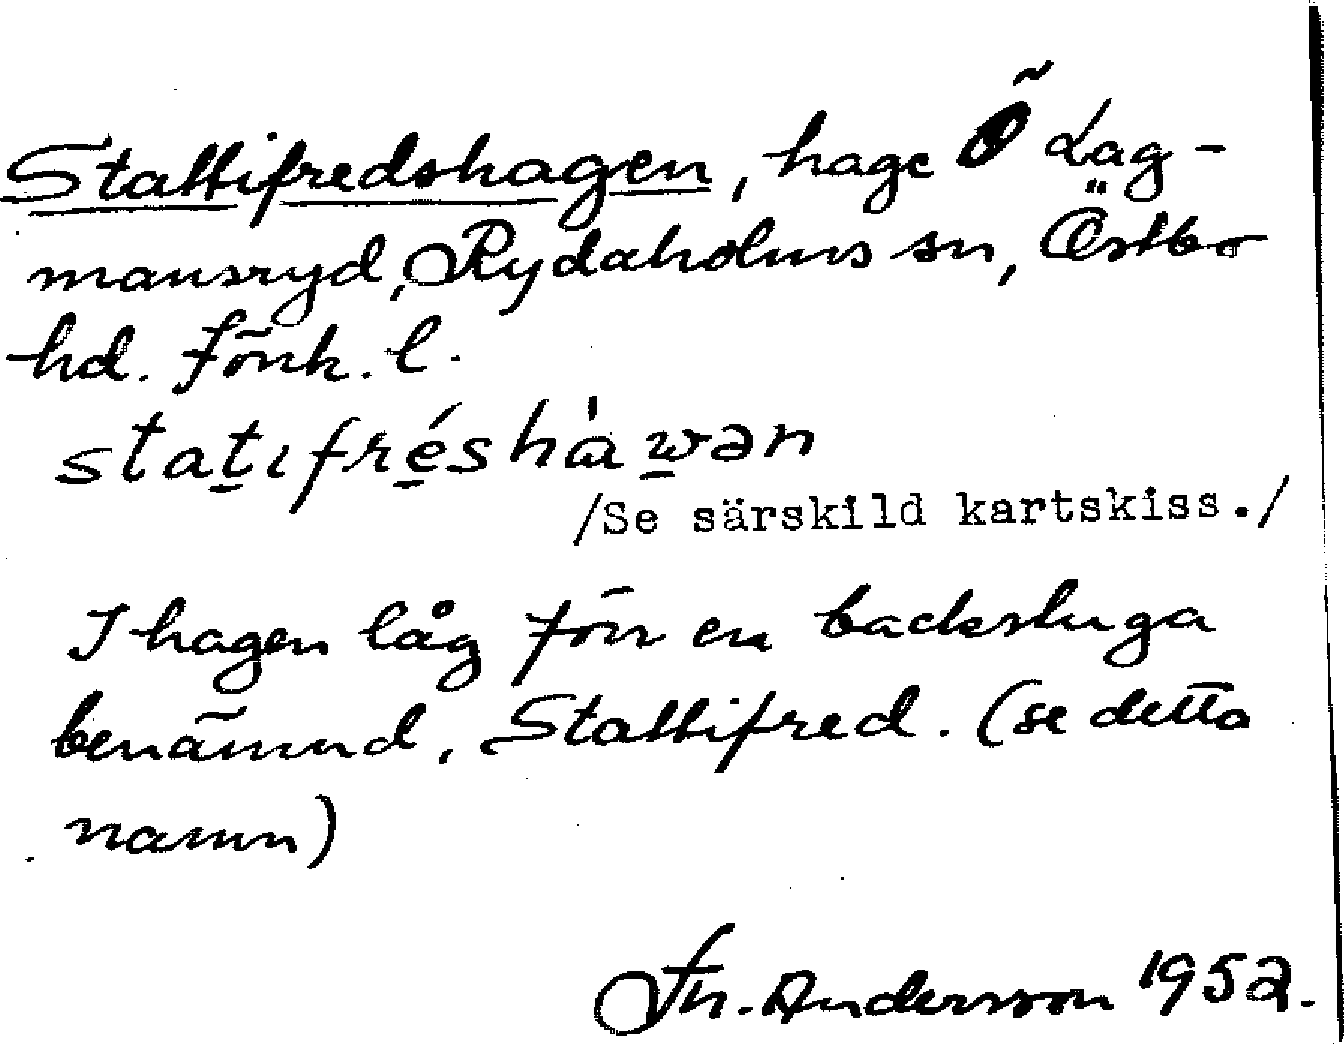 Stattifredshagen, hage Ö Lag-
mansryd, Rydaholms sn, Östbo
hd. Jönk. l.
statıfréshàwən
/Se särskild kartskiss./
I hagen låg förr en backstuga
benämnd, Stattifred. (se detta
namn)
Th. Andersson 1952.